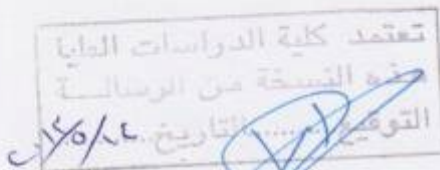 تعتمد كلية الدراسات العليا
هذه النسخة من الرسالــة
التوقيع ......... التاريخ ...